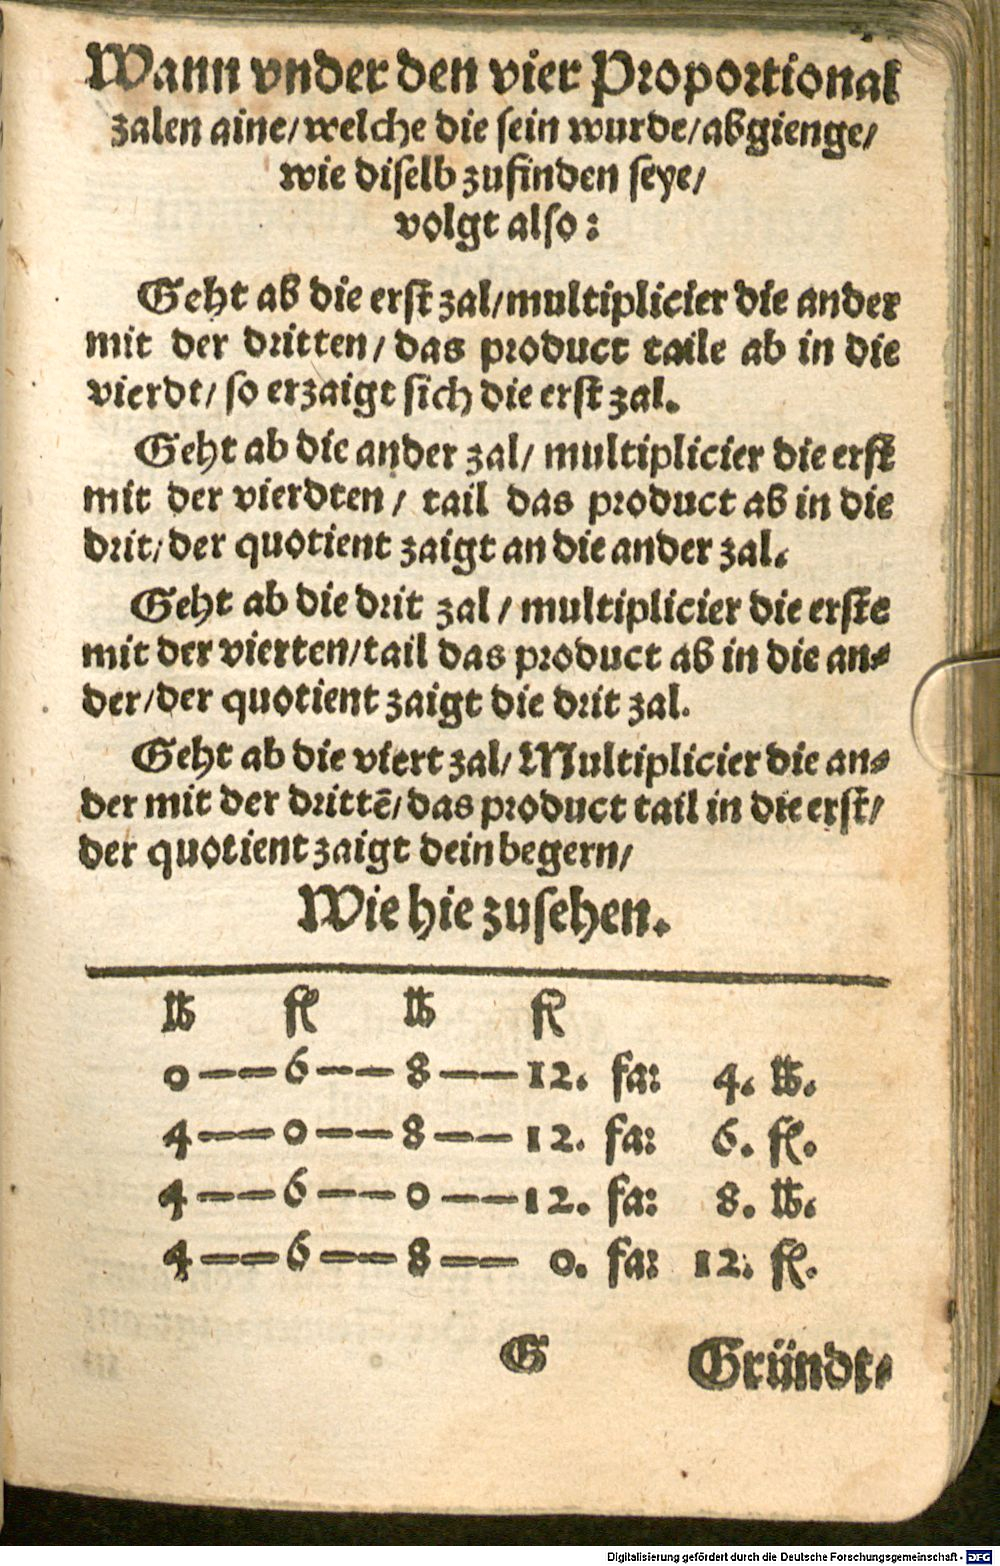 Wann vnder den vier Proportional
zalen aine/welche die sein wurde/abgienge/
wie diselb zufinden seye/
volgt also:
Geht ab die erst zal/multiplicier die ander
mit der dritten/das product taile ab in die
vierdt/so erzaigt sich die erst zal.
Geht ab die ander zal/multiplicier die erst
mit der vierdten/tail das product ab in die
drit/der quotient zaigt an die ander zal.
Geht ab die drit zal/multiplicier die erste
mit der vierten/tail das product ab in die an-
der/der quotient zaigt die drit zal.
Geht ab die viert zal/Multiplicier die an-
der mit der drittē/das product tail in die erst/
der quotient zaigt dein begern/
Wie hie zusehen.
lb fl lb fl
0——6——8——12. fa: 4. lb.
4——0——8——12. fa: 6. fl.
4——6——0——12. fa: 8. lb.
4——6——8—— 0. fa: 12. fl.
G Gründt-
Digitalisierung gefördert durch die Deutsche Forschungsgemeinschaft - DFG